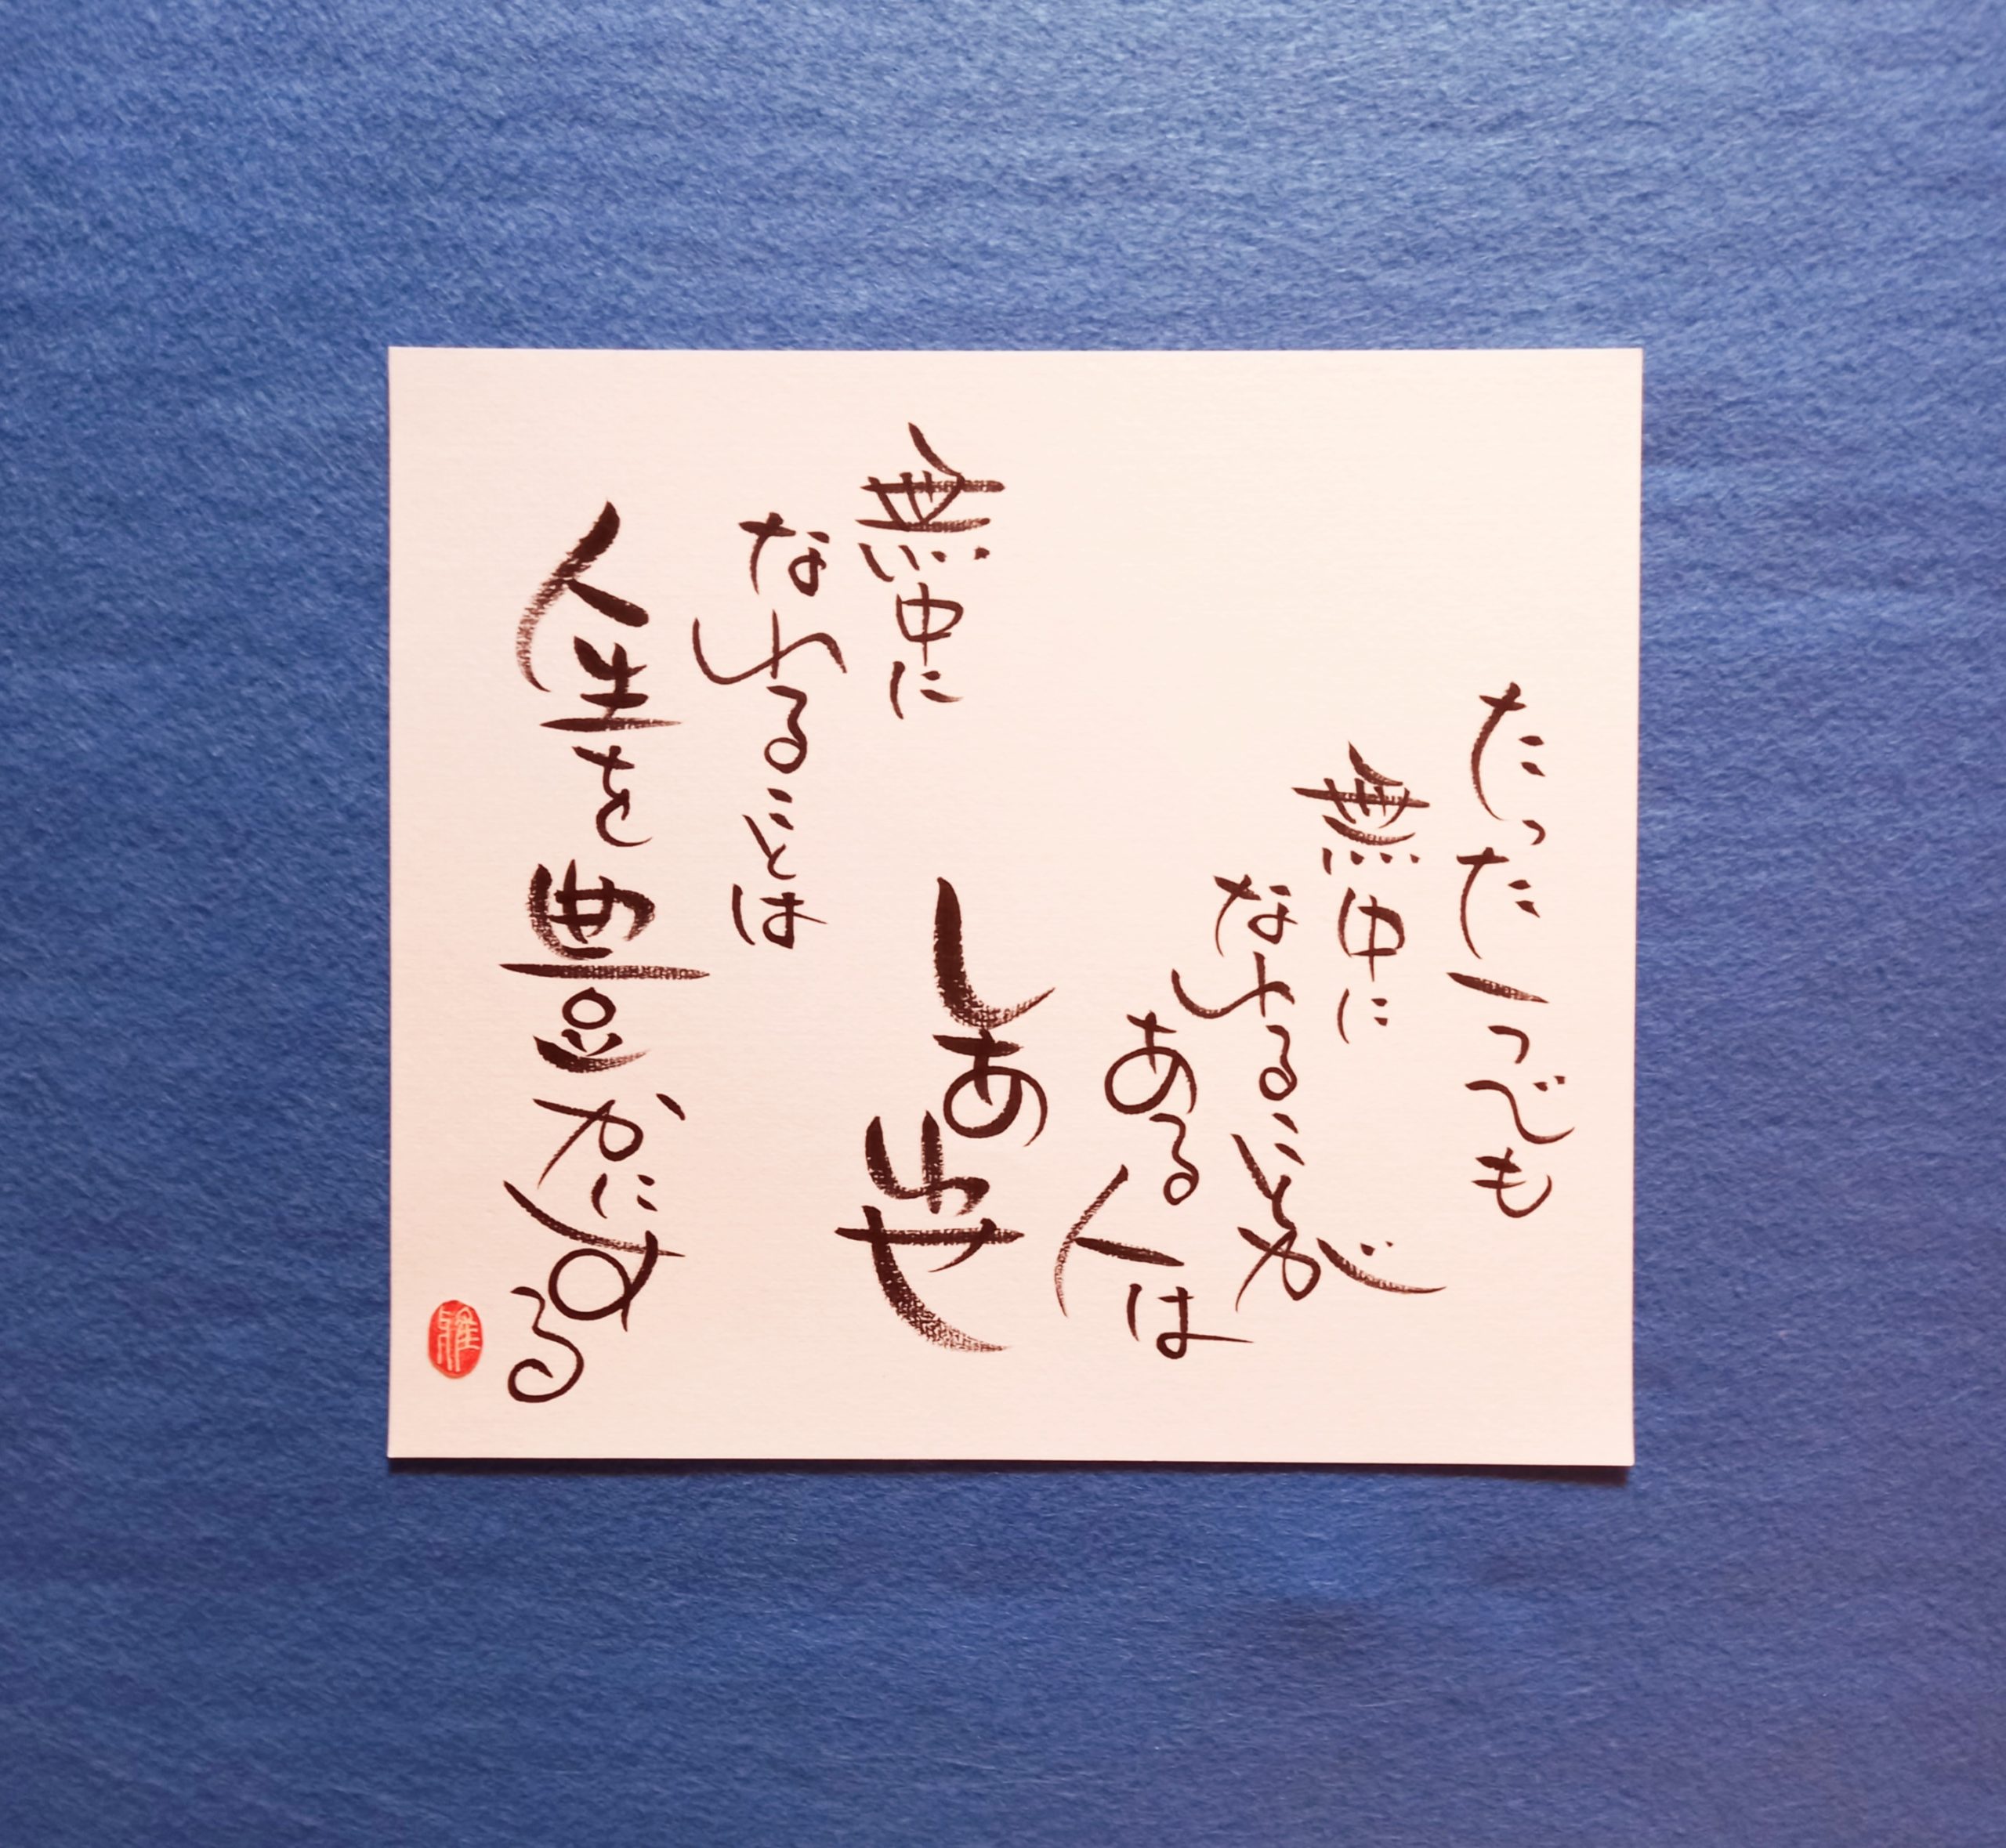 たった一つでも
無中に
なれることが
ある人は
しあわせ
無中に
なれることは
人生を豊かにする
雅